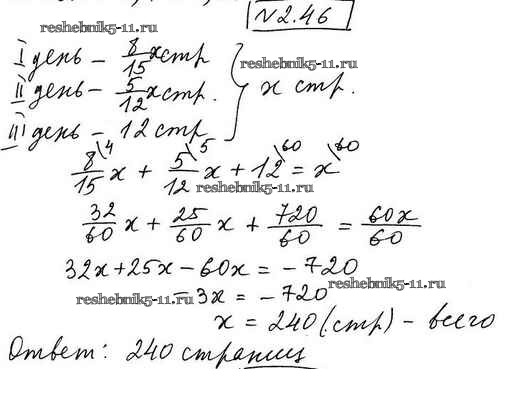 № 2.46
reshebnik5-11.ru
I день – 8/15 x стр
reshebnik5-11.ru
II день – 5/12 x стр. } x стр.
III день – 12 стр
8/15 \4 x + 5/12 \5 x + 12 \60 = x \60
reshebnik5-11.ru
32/60 x + 25/60 x + 720/60 = 60x/60
32x + 25x – 60x = – 720
reshebnik5-11.ru
– 3x = – 720
reshebnik5-11.ru
x = 240 (стр) – всего
Ответ: 240 страниц